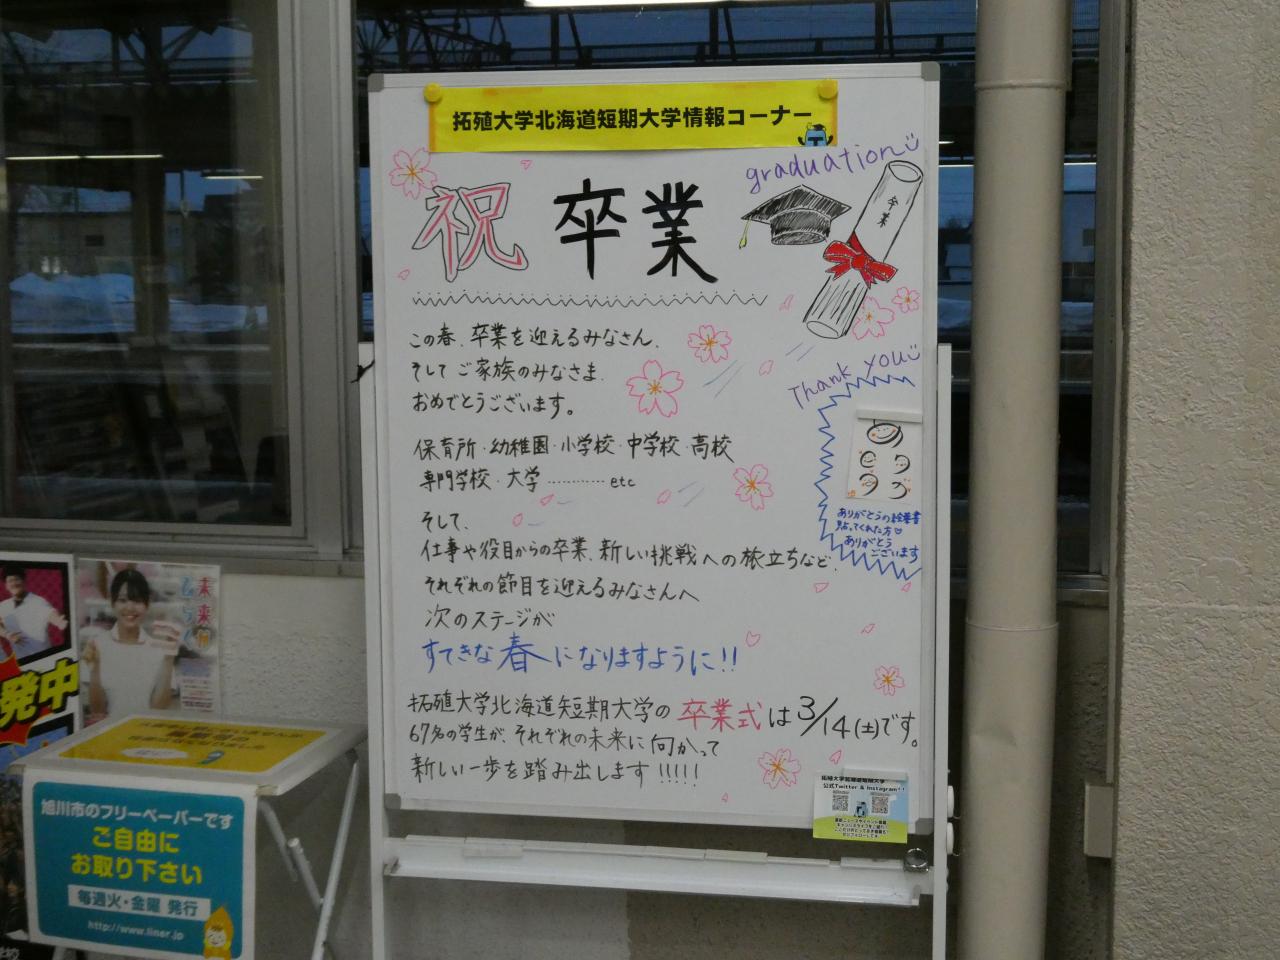 拓殖大学北海道短期大学情報コーナー
graduation
祝 卒業
卒業
この春、卒業を迎えるみなさん、
そしてご家族のみなさま、
おめでとうございます。
保育所・幼稚園・小学校・中学校・高校
専門学校・大学…………etc
そして、
仕事や役目からの卒業、新しい挑戦への旅立ちなど、
それぞれの節目を迎えるみなさんへ
次のステージが
すてきな春になりますように!!
拓殖大学北海道短期大学の卒業式は3/14(土)です。
67名の学生が、それぞれの未来に向かって
新しい一歩を踏み出します!!!!!
Thank you
ありがとうの絵葉書
貼ってくれた方
ありがとう
ございます
拓殖大学北海道短期大学
公式Twitter & Instagram!!
発中
旭川市のフリーペーパーです
ご自由に
お取り下さい
毎週火・金曜 発行
http://www.liner.jp